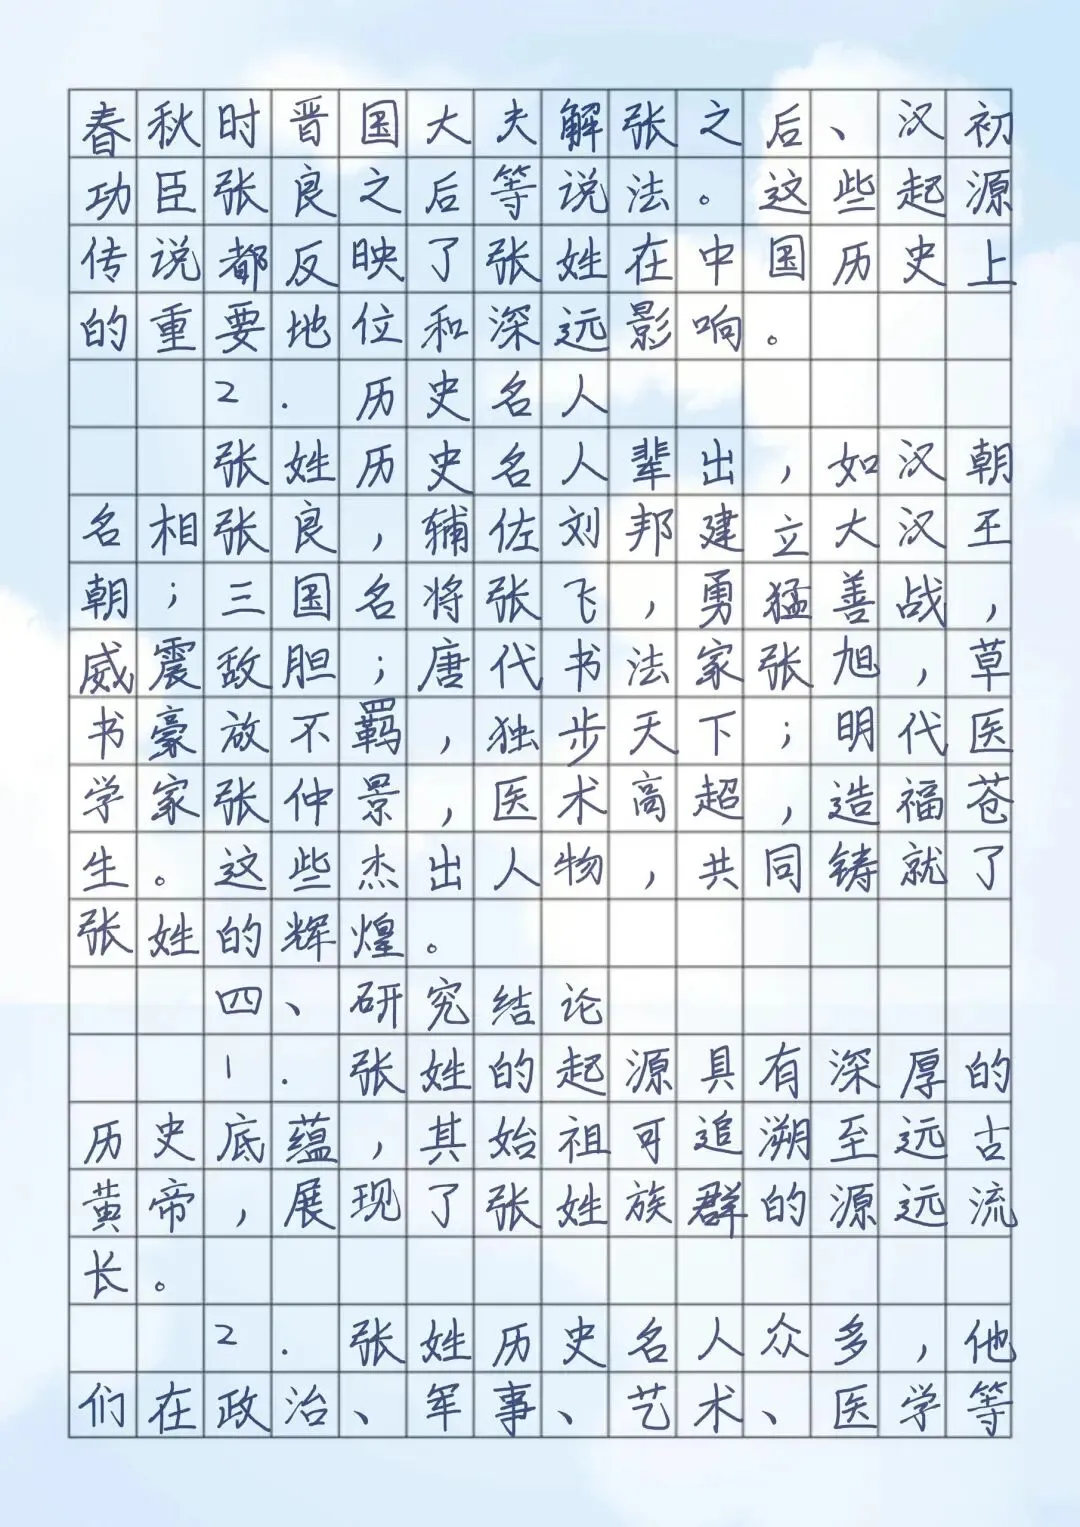 春秋时晋国大夫解张之后、汉初
功臣张良之后等说法。这些起源
传说都反映了张姓在中国历史上
的重要地位和深远影响。
2.历史名人
张姓历史名人辈出，如汉朝
名相张良，辅佐刘邦建立大汉王
朝；三国名将张飞，勇猛善战，
威震敌胆；唐代书法家张旭，草
书豪放不羁，独步天下；明代医
学家张仲景，医术高超，造福苍
生。这些杰出人物，共同铸就了
张姓的辉煌。
四、研究结论
1.张姓的起源具有深厚的
历史底蕴，其始祖可追溯至远古
黄帝，展现了张姓族群的源远流
长。
2.张姓历史名人众多，他
们在政治、军事、艺术、医学等